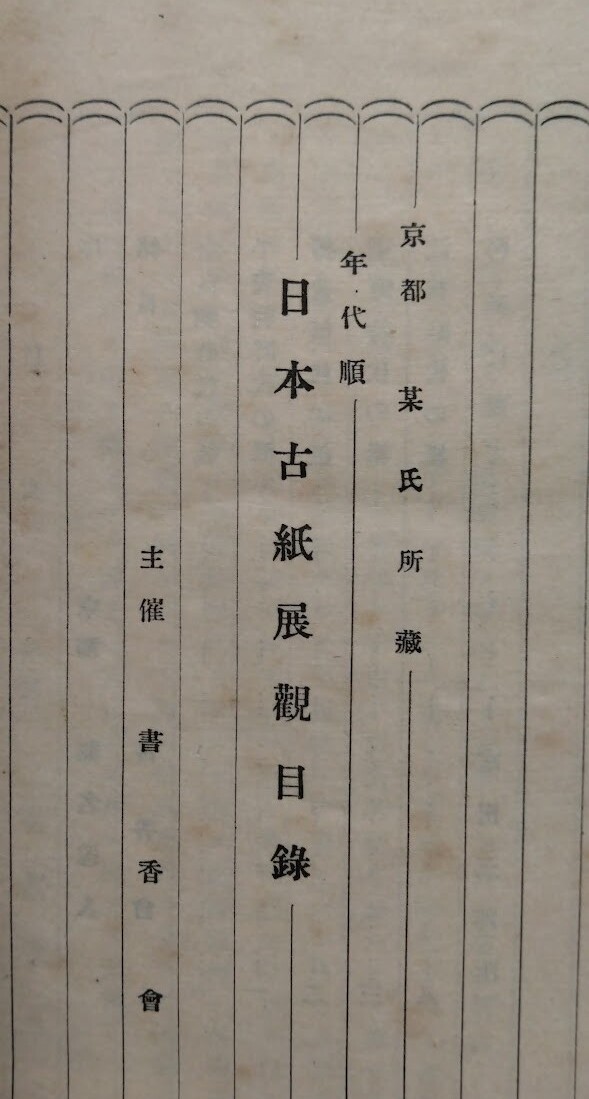 京都 某氏所藏
年代順
日本古紙展觀目錄
主催 書香會